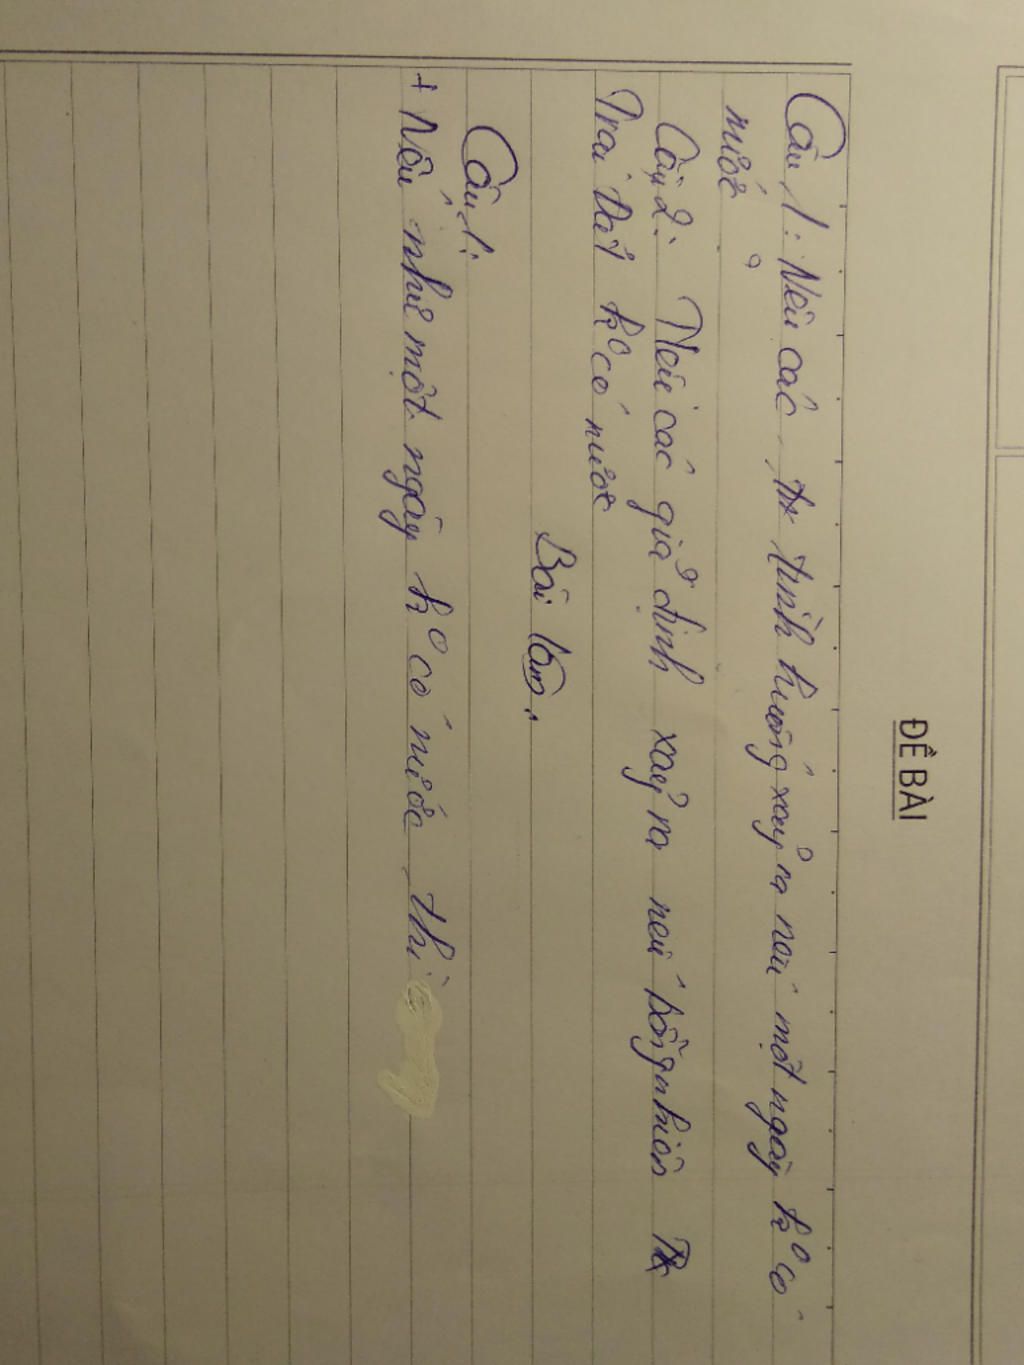 ĐỀ BÀI
Câu 1: Nêu các tình huống xảy ra nếu một ngày k° có
nước
Câu 2: Nêu các giả định xảy ra nếu bỗng nhiên
Trái Đất k° có nước
Bài làm.
Câu 1:
+ Nếu như một ngày k° có nước thì